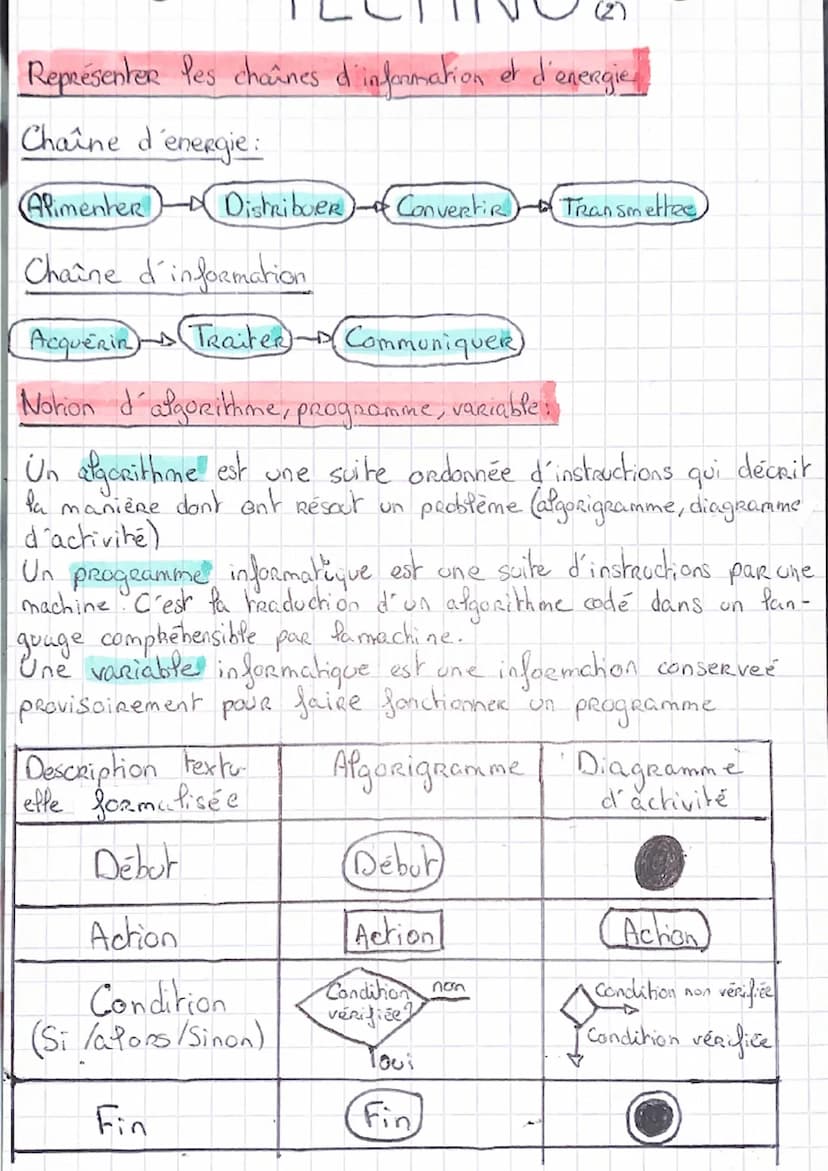 TECHNO (2)
Représenter les chaînes d'information et d'energie
Chaîne d'energie:
Alimenter Distribuer Convertir Transmettre
Chaîne d'information
Acquérir Traiter Communiquer
Notion d'algorithme, programme, variable:
Un algorithme est une suite ordonnée d'instructions qui décrit
la manière dont ont résout un problème (algorigramme, diagramme
d'activité)
Un programme informatique est une suite d'instructions par une
machine. C'est la traduction d'un algorithme codé dans un lan-
gouage comphéhensible par la machine.
Une variable informatique est une information conserveé
provisoirement pour faire fonctionner un programme
Description textu- Algorigramme Diagramme
elle formalisée d'activité
Début Début
Action Action Action
Condition Condition vérifiée? non Condition non vérifiée
(Si /alors /Sinon) oui Condition vérifiée
Fin Fin